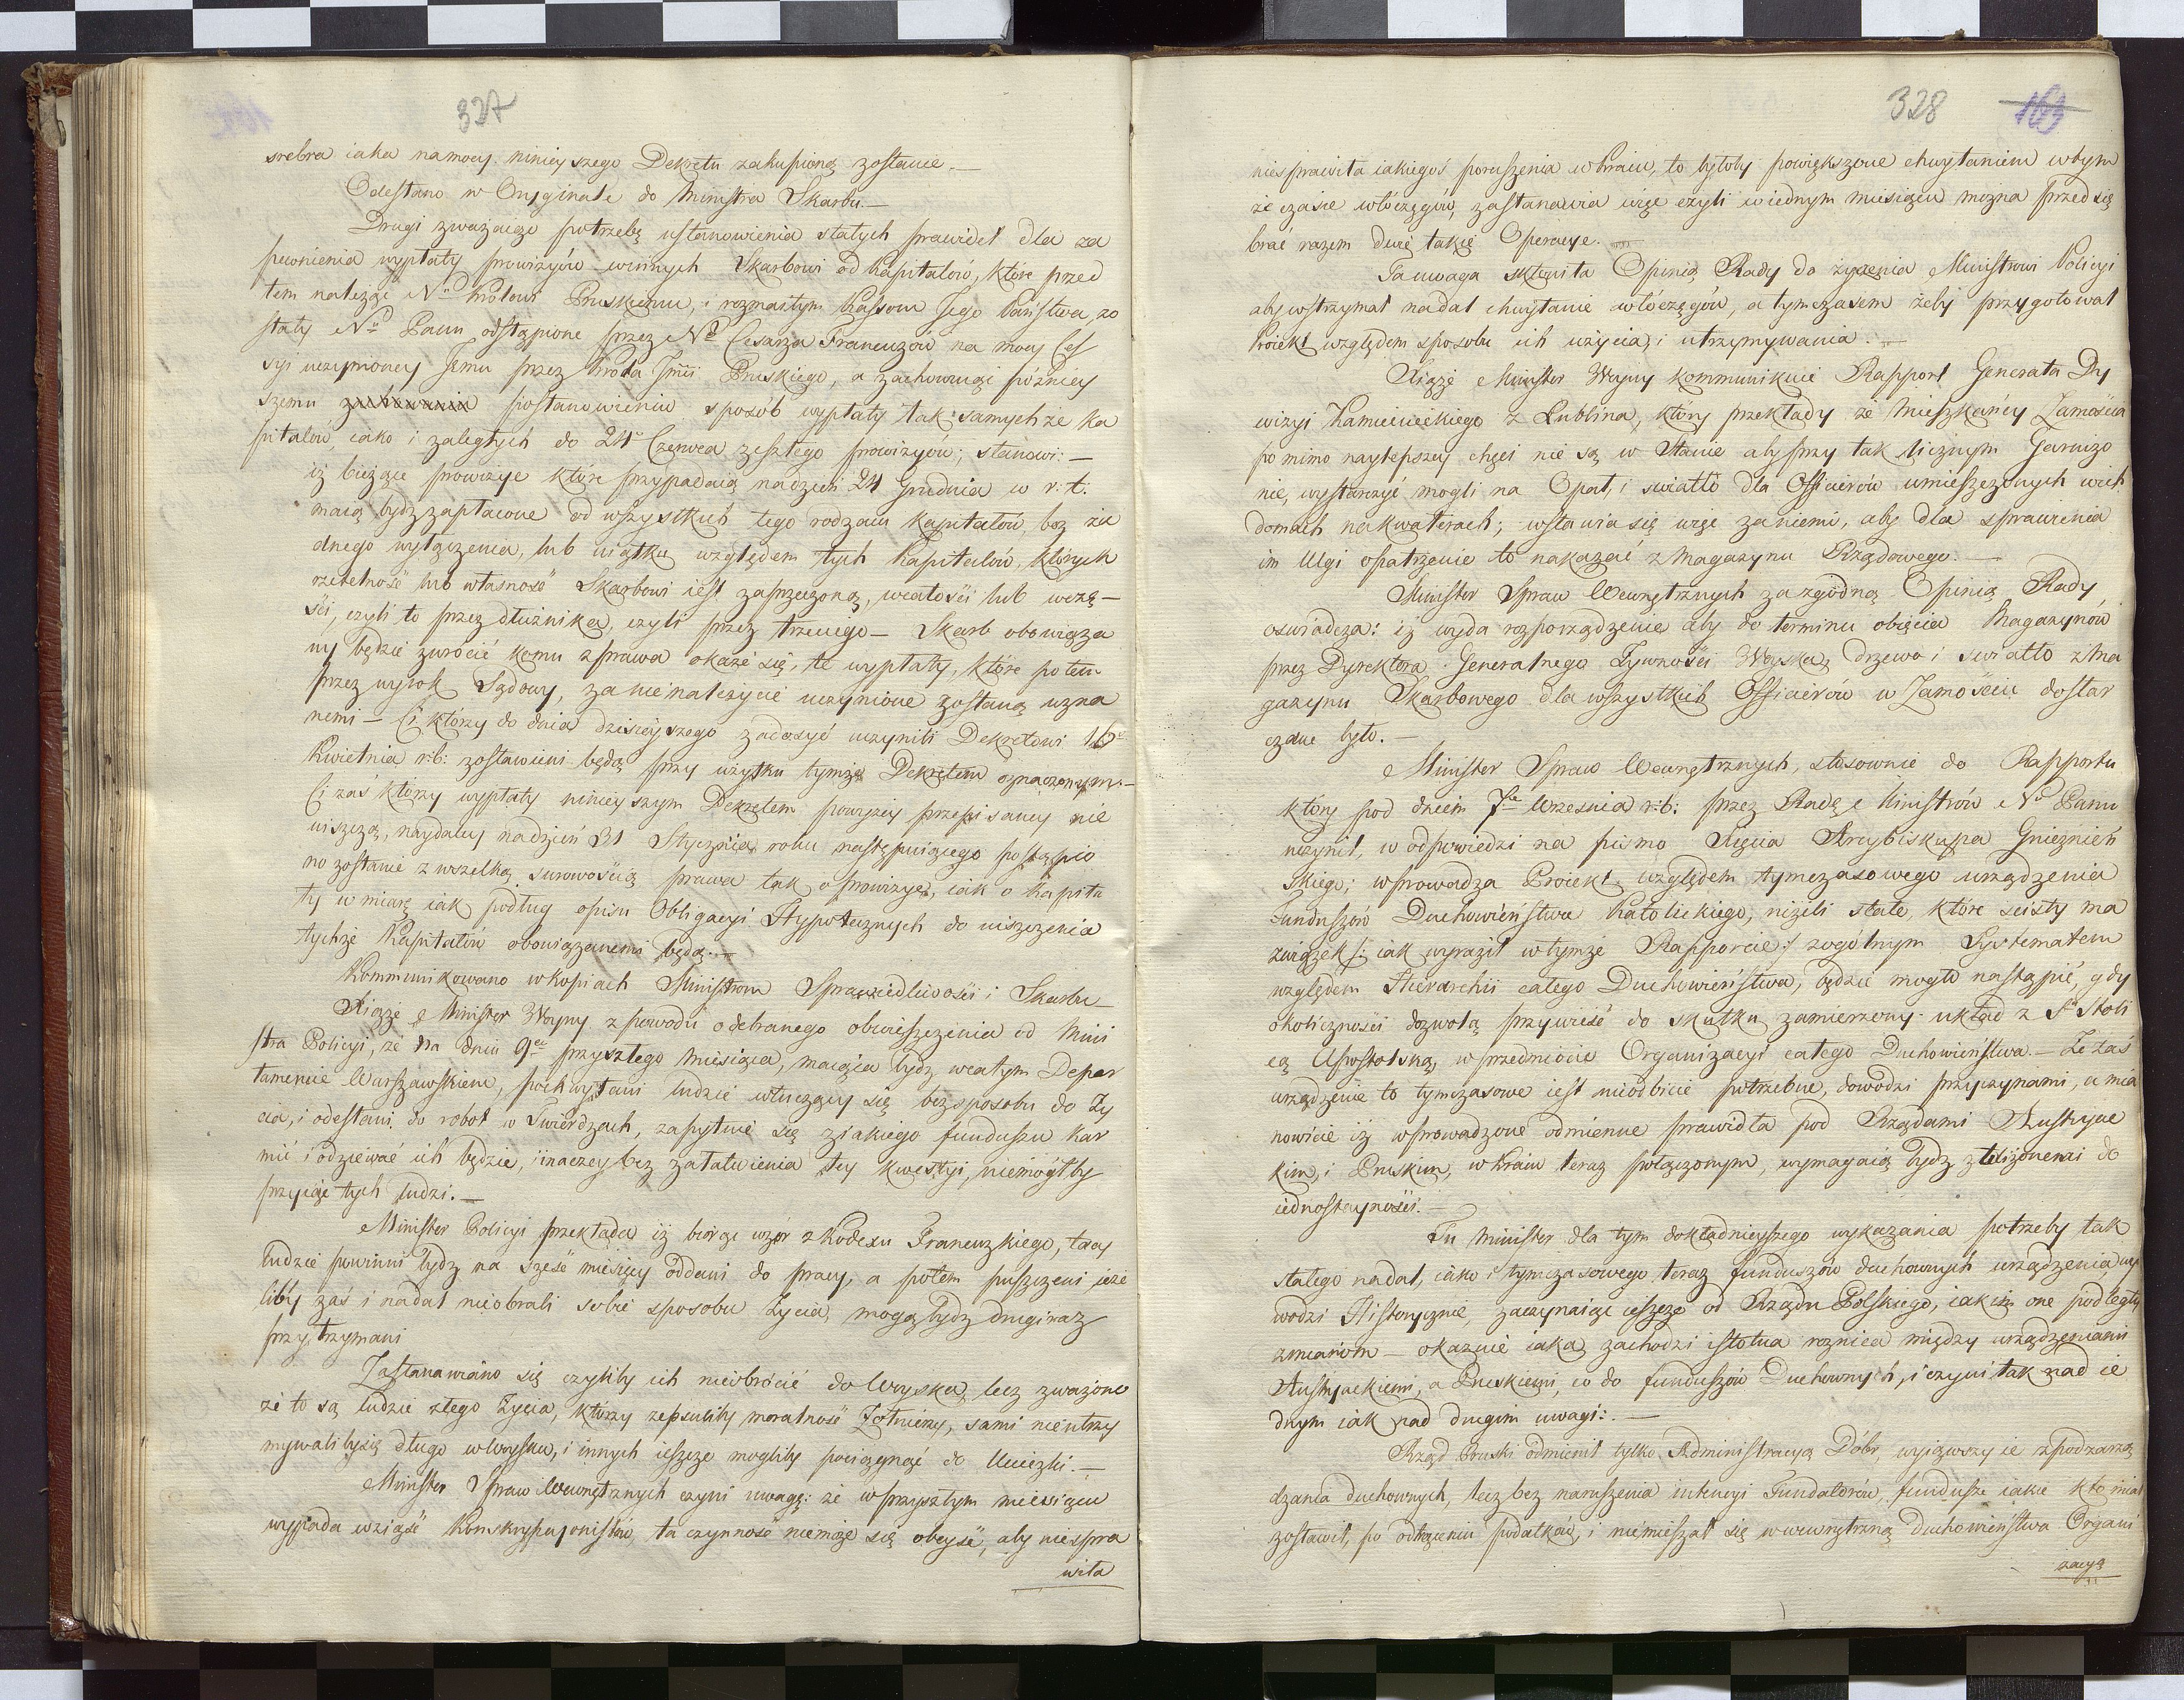 327
srebra iaka namocy ninieyszego Dekretu zakupioną zostanie.—
Odesłano w Oryginale do Ministra Skarbu.—
Drugi zważaiąc potrzebę ustanowienia stałych prawideł dla za
pewnienia wypłaty prowizyów winnych Skarbowi od kapitałów, które przed
tem należąc Nu Królowi Pruskiemu, i rozmaitym Kassom Jego Państwa, zo
stały Nu Panu odstąpione przez No Cesarza Francuzów na mocy Ces
syi uczynioney Jemu przez Króla Jmci Pruskiego, a zachowuiąc późniey
szemu postanowieniu sposób wypłaty tak samychże ka
pitałów, iako i zaległych do 24o Czerwca zeszłego prowizyów; stanowi:—
iż bieżące prowizye które przypadaią nadzień 24 Grudnia w r: t:
maią bydz zapłacone od wszystkich tego rodzaiu kapitałów, bez ża
dnego wyłączenia, lub wiątku względem tych Kapitałów, których
rzetelność lub własność Skarbowi iest zaprzeczoną, wcałości lub wczę—
ści, czyli to przez dłużnika, czyli przez trzeciego— Skarb obowiąza
ny będzie zwrócić komu z prawa okaże się, te wypłaty, które potem
przez wyrok Sądowy, za nienależycie uczynione zostaną uzna
nemi— Ci którzy do dnia dzisieyszego zadosyć uczynili Dekretowi 16o
Kwietnia r: b: zostawieni będą przy użytku tymże Dekretem oznaczonym.—
Ci zaś którzy wypłaty ninieyszym Dekretem powyżey przepisaney nie
uiszczą, naydaley nadzień 31 Stycznia roku następuiącego postąpio
no zostanie z wszelką surowością prawa tak o prowizye, iak o kapita
ły w miarę iak podług opisu Obligacyi Hypotecznych do uiszczenia
tychże Kapitałów obowiązanemi będą.—
Kommunikowano wkopiach Ministrom Sprawiedliwości i Skarbu—
Xiąże Minister Woyny z powodu odebranego obwieszczenia od Mini
stra Policyi, że na dniu 9ca przyszłego Miesiąca, maiąca bydz wcałym Depar
tamencie Warszawskiem, pochwytani ludzie włuczący się bez sposobu do Ży
cia, i odesłani do robot w Twierdzach, zapytuie się z iakiego funduszu kar
mić i odziewać ich będzie, inaczey bez załatwienia tey kwestyi, niemógłby
przyiąć tych ludzi.—
Minister Policyi przekłada iż biorąc wzór z Kodexu Francuzkiego, tacy
ludzie powinni bydz na sześć miesięcy oddani do pracy, a potem puszczeni, ieże
liby zaś i nadal nieobrali sobie sposobu Życia, mogą bydz drugi raz
przytrzymani
Zastanawiano się czyliby ich nieobrócić do Woyska, lecz zważono
że to są ludzie złego Życia, którzy zepsuliby moralność Żołnierzy, sami nieutrzy
mywaliby się długo wWoysku, i innych ieszcze mogliby pociągnąć do Ucieczki.—
Minister Spraw Wewnętrznych czyni uwagę: że wprzyszłym miesiącu
wypada wziąść Konskrypcyonistów, ta czynność niemoże się obeyść, aby niespra
wiła
328 163
niesprawiła iakiegoś poruszenia w kraiu, to byłoby powiększone chwytaniem wtym
że czasie włóczęgów, zastanawia więc czyli wiednym miesiącu można przedsię
brać razem dwie takie Operacye.—
Ta uwaga skłoniła Opinią Rady do życzenia Ministrowi Policyi
aby wstrzymał nadal chwytanie włóczęgów, a tymczasem żeby przygotował
Proiekt względem sposobu ich użycia, i utrzymywania.—
Xiąże Minister Woyny kommunikuie Rapport Generała Dy
wizyi Kamienieckiego z Lublina, który przekłada że Mieszkańcy Zamościa
pomimo naylepszey chęci nie są w Stanie aby przy tak licznym Garnizo
nie, wystarczyć mogli na Opał, i światło dla Officierów umieszczonych wich
domach nakwaterach; wstawia się więc zaniemi, aby dla sprawienia
im Ulgi opatrzenie to nakazać z Magazynu Rządowego.—
Minister Spraw Wewnętrznych za zgodną Opinią Rady,
oswiadcza: iż wyda rozporządzenie aby do terminu obięcia Magazynów
przez Dyrektora Generalnego Żywności Woyska, drzewo i swiatło z Ma
gazynu Skarbowego dla wszystkich Officierów w Zamościu dostar
czane było.—
Minister Spraw Wewnętrznych, stosownie do Rapportu
który pod dniem 7ca Wrzesnia r: b: przez Radę Ministrów Nu Panu
uczynił, w odpowiedzi na pismo Xięcia Arcybiskupa Gnieznień
skiego; wprowadza Proiekt względem tymczasowego urządzenia
Funduszów Duchowieństwa Katolickiego, niżeli stałe, które scisły ma
związek /: iak wyraził wtymże Rapporcie :/ zogólnym Systematem
względem Hierarchii całego Duchowieństwa, będzie mogło nastąpić, gdy
okoliczności dozwolą przywieść do skutku zamierzony układ z Sa Stoli
cą Apostolską, wprzedmiocie Organizacyi całego Duchowieństwa.— Że zaś
urządzenie to tymczasowe iest nieodbicie potrzebne, dowodzi przyczynami, a mia
nowicie iż wprowadzone odmienne prawidła pod Rządami Austryac
kim, i Pruskim, w kraiu teraz połączonym, wymagaią bydz zbliżonemi do
iednostayności.—
Tu Minister dla tym dokładnieyszego wykazania potrzeby tak
stałego nadal, iako i tymczasowego teraz funduszów duchownych urządzenia, wy
wodzi Historycznie, zaczynaiąc ieszcze od Rządu Polskiego, iakim one podległy
zmianom— okazuie iaka zachodzi istotna roznica między urządzeniami
Austryackiemi, a Pruskiemi, co do funduszów Duchownych, i czyni tak nad ie
dnym iak nad drugim uwagi:.—
Rząd Pruski odmienił tylko Administracyą Dóbr, wyiąwszy ie zpodzarzą
dzania duchownych, lecz bez naruszenia intencyi Fundatorów, fundusze iakie kto miał
zostawił, po odtrąceniu podatków, i niemieszał się wwewnętrzną Duchowieństwa Organi
zacyą